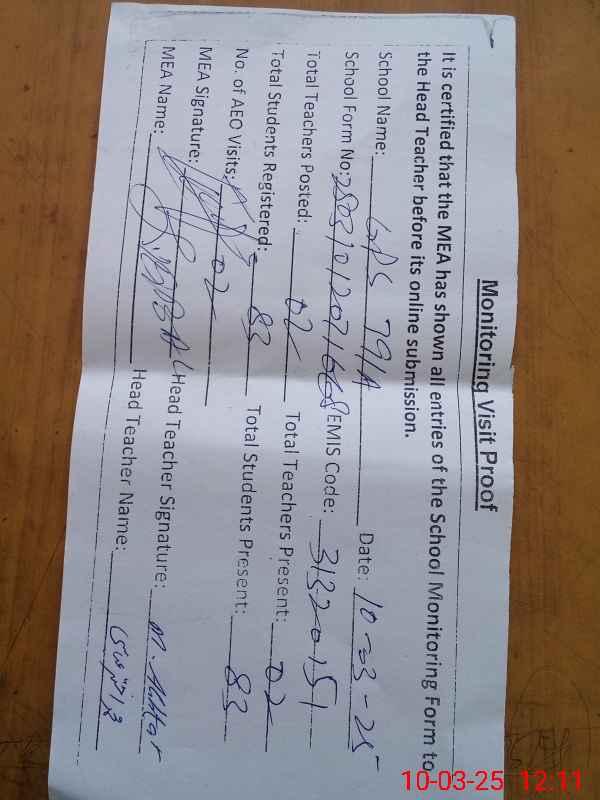 Monitoring Visit Proof
It is certified that the MEA has shown all entries of the School Monitoring Form to
the Head Teacher before its online submission.
School Name: GPS 79/A Date: 10-03-25
School Form No: EMIS Code: 31320151
Total Teachers Posted: 02 Total Teachers Present: 02
Total Students Registered: 83 Total Students Present: 83
No. of AEO Visits: 02
MEA Signature: Head Teacher Signature: M. Akhtar
MEA Name: Head Teacher Name:
10-03-25 12:11